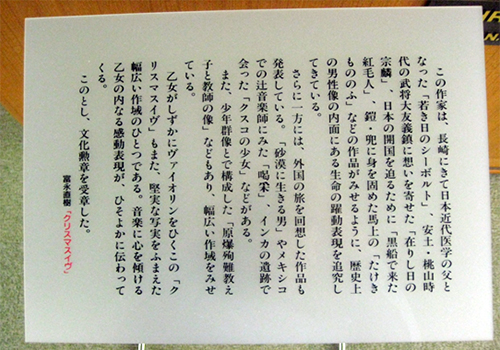 この作家は、長崎にきて日本近代医学の父と
なった「若き日のシーボルト」、安土・桃山時
代の武将大友義鎮に想いを寄せた「在りし日の
宗麟」、日本の開国を迫るために「黒船で来た
紅毛人」、鎧・兜に身を固めた馬上の「たけき
もののふ」などの作品がみせるように、歴史上
の男性像の内面にある生命の躍動表現を追究し
てきている。
さらに一方には、外国の旅を回想した作品も
発表している。「砂漠に生きる男」やメキシコ
での辻音楽師にみた「喝采」、インカの遺跡で
会った「クスコの少女」などがある。
また、少年群像とで構成した「原爆殉難教え
子と教師の像」などもあり、幅広い作域をみせ
ている。
乙女がしずかにヴァイオリンをひくこの「ク
リスマスイヴ」もまた、堅実な写実をふまえた
幅広い作域のひとつである。音楽に心を傾ける
乙女の内なる感動表現が、ひそよかに伝わって
くる。
このとし、文化勲章を受章した。
富永直樹「クリスマスイヴ」